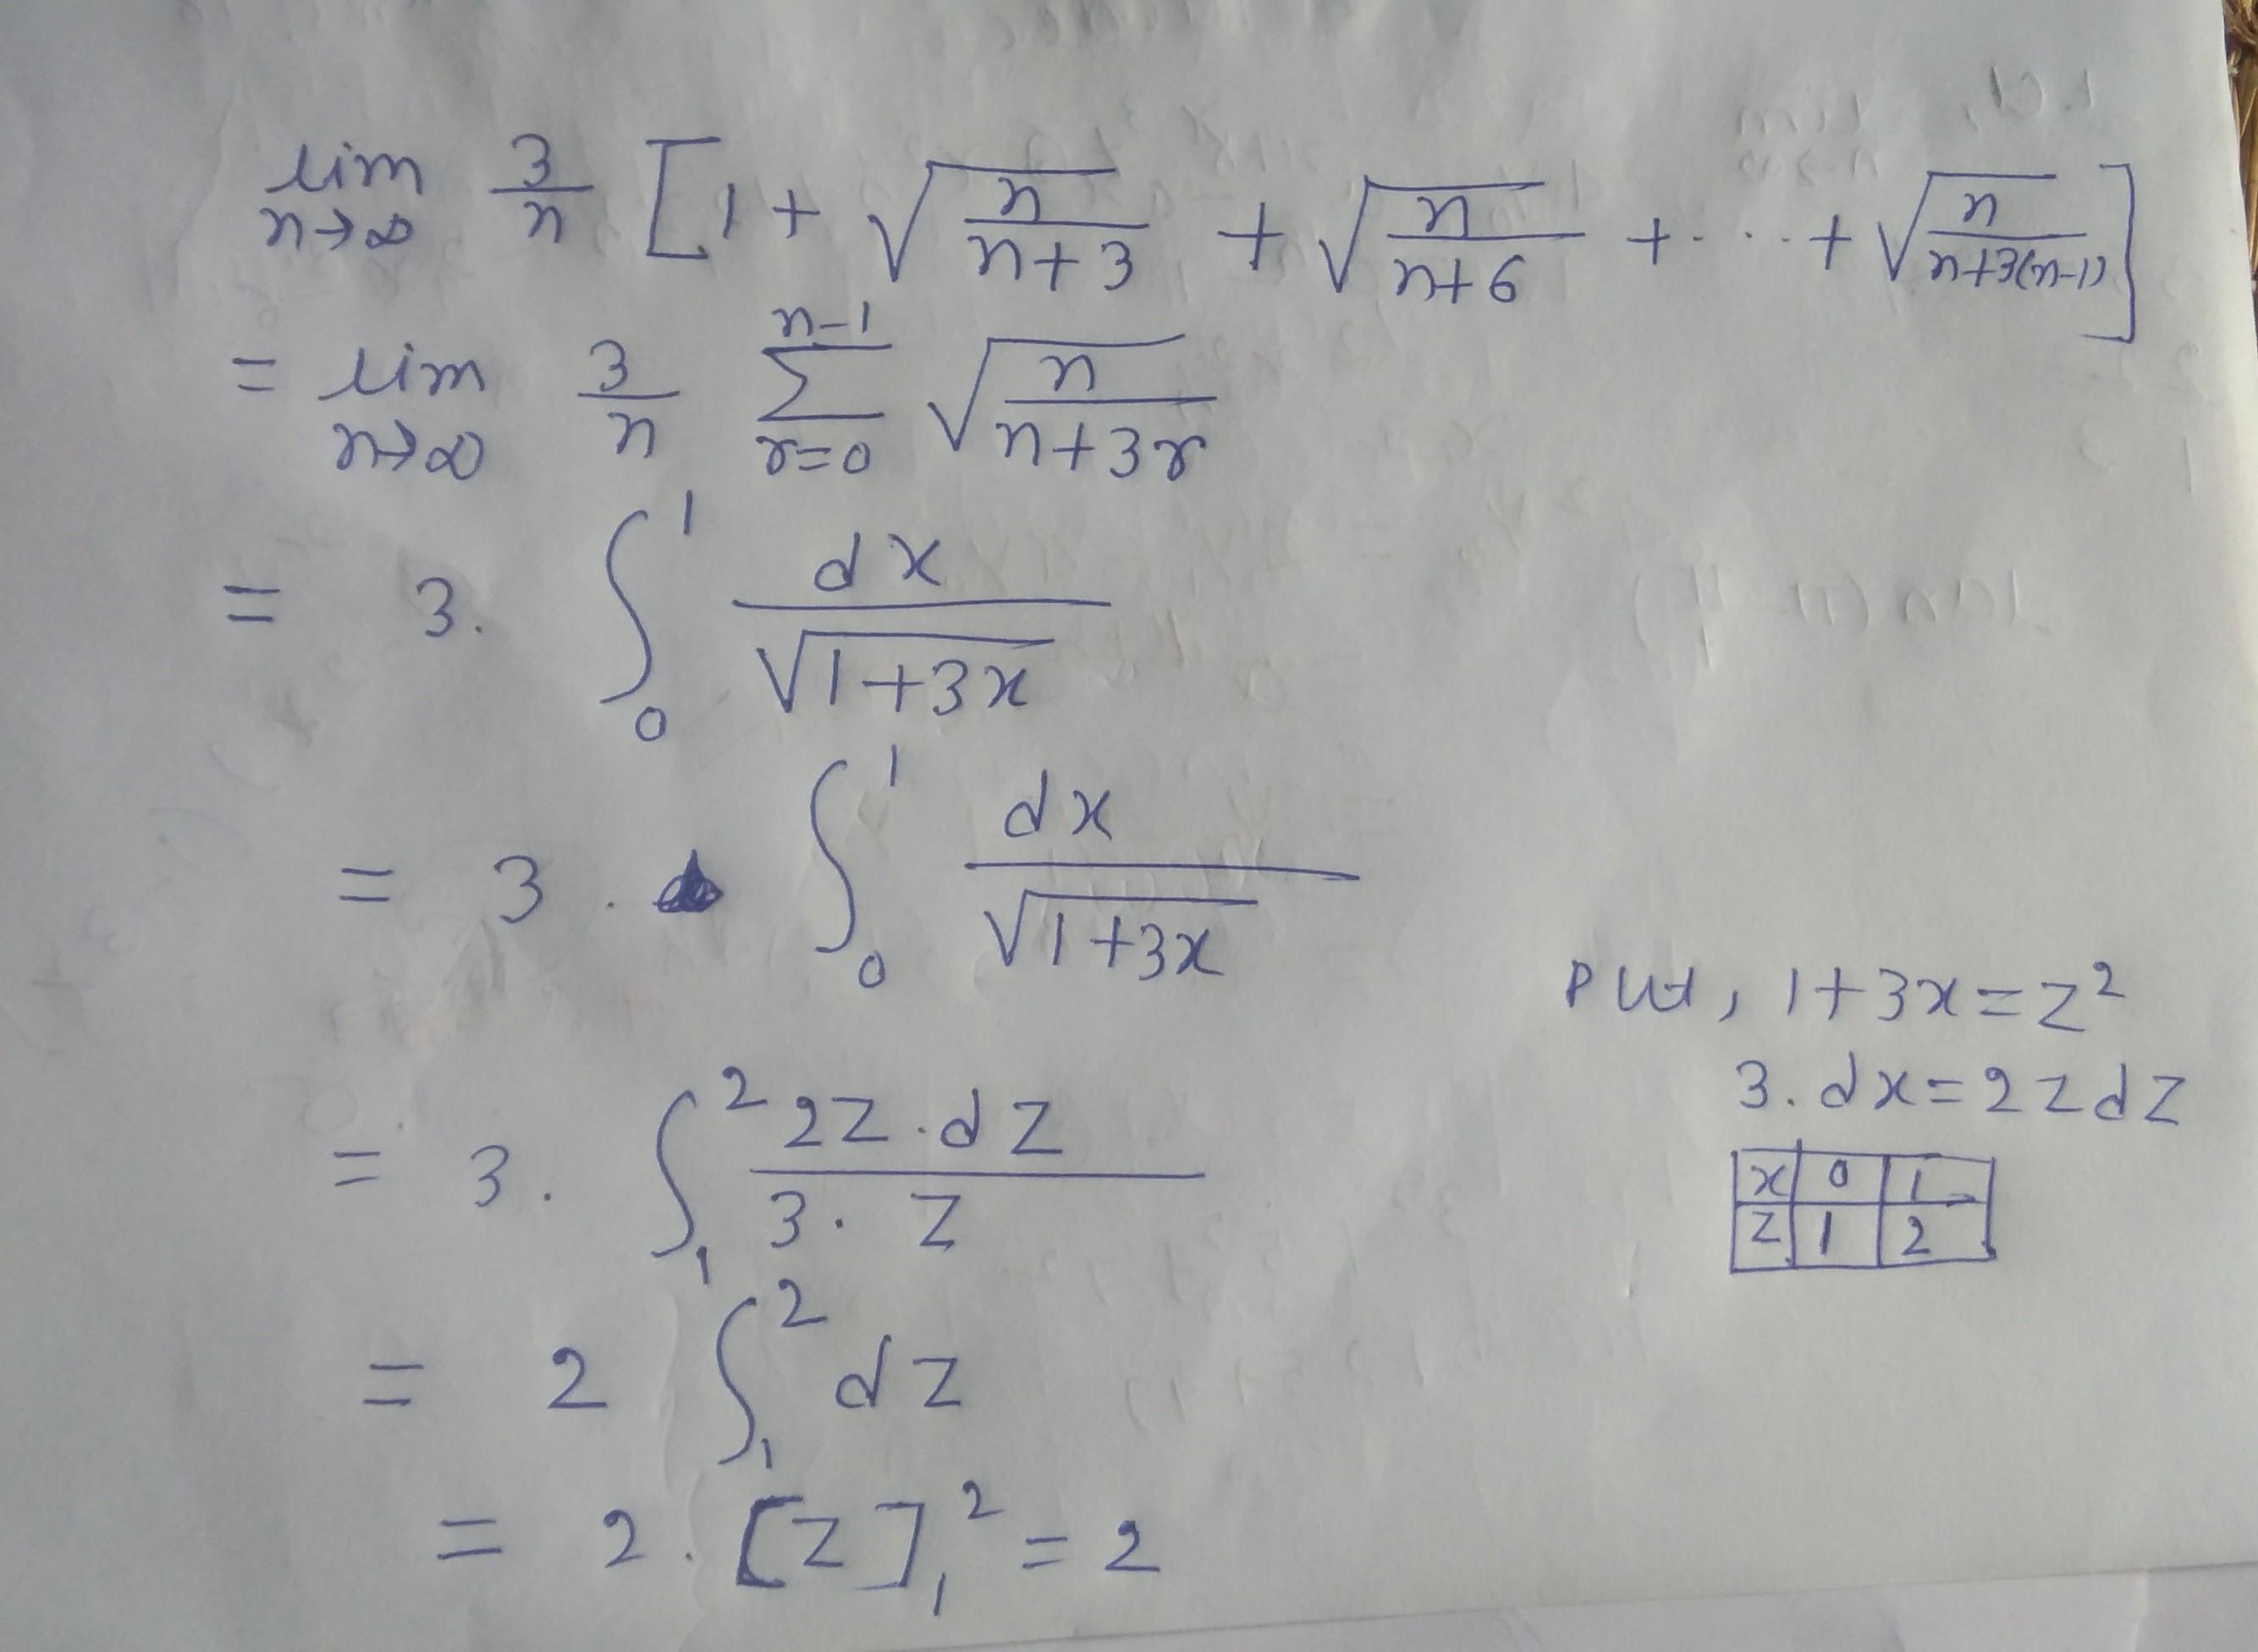 lim n→∞ 3/n [1 + √(n/(n+3)) + √(n/(n+6)) + ... + √(n/(n+3(n-1)))]
= lim n→∞ 3/n ∑_{r=0}^{n-1} √(n/(n+3r))
= 3. ∫₀¹ dx/√(1+3x)
= 3 . ∫₀¹ dx/√(1+3x)
Put, 1+3x=z²
3.dx=2zdz
= 3. ∫₁² 2z.dz/(3. z)
x 0 1
z 1 2
= 2 ∫₁² dz
= 2. [z]₁² = 2